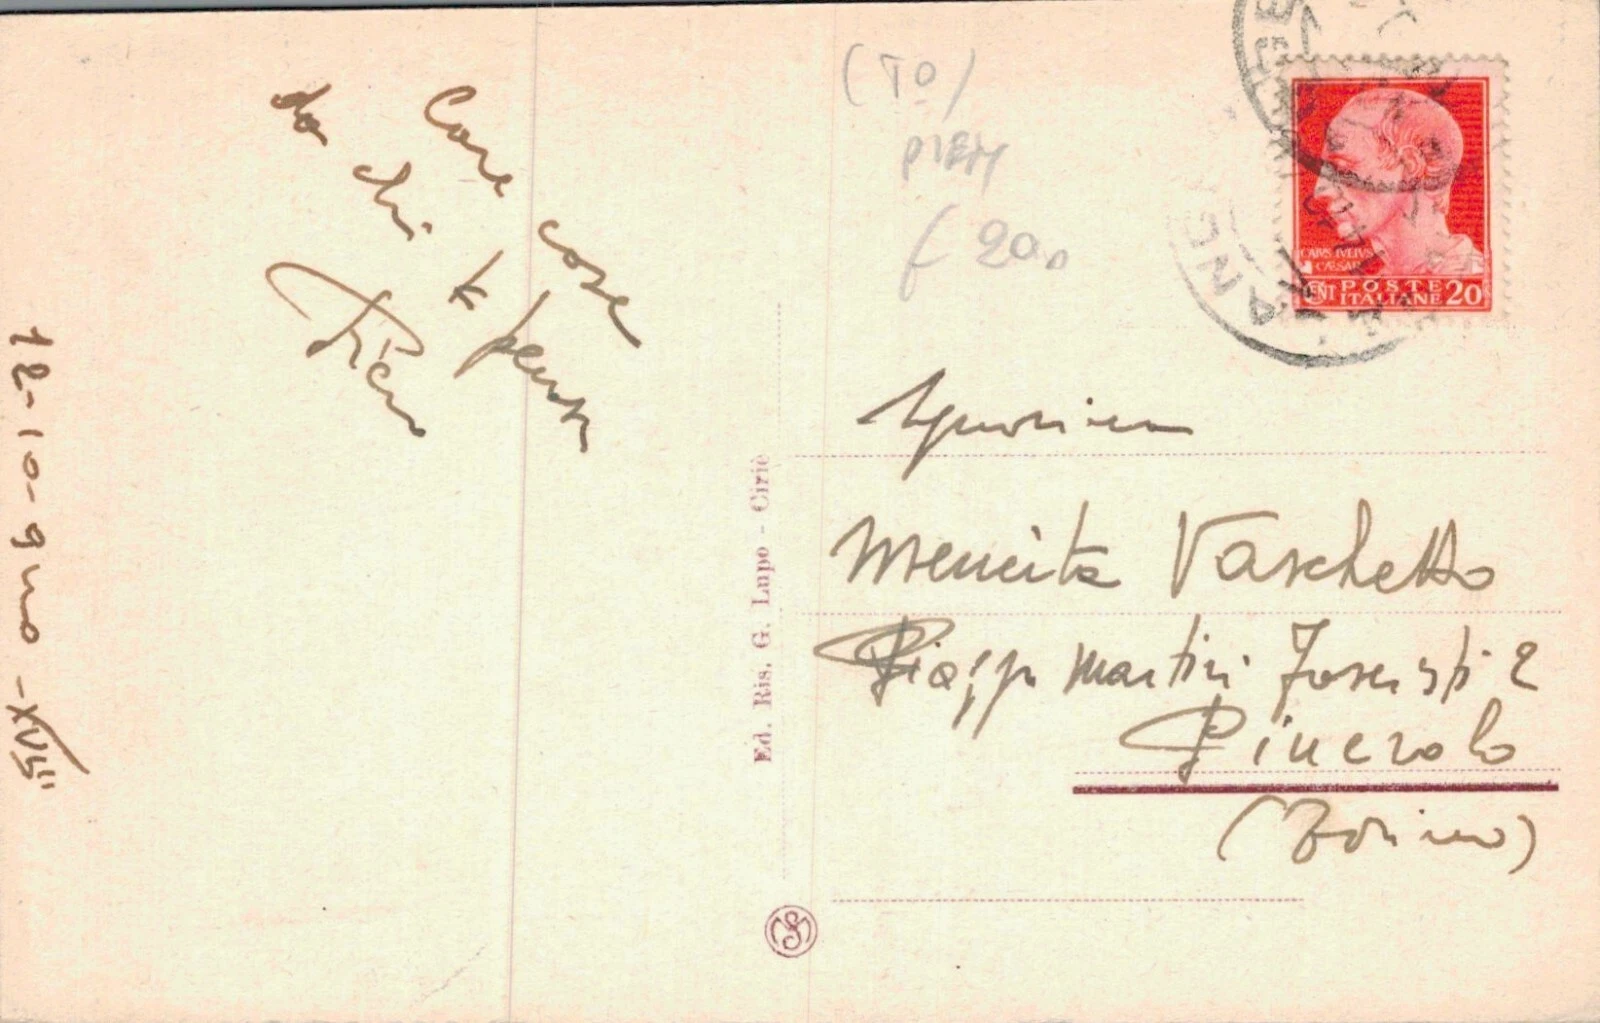 Care cose
da chi ti pensa
Piero
12-10-gno-XVIII
Ed. Ris. G. Lupo - Ciriè
(TO)
PIEM
CAIVS IVLIVS
CAESAR
CENT POSTE ITALIANE 20
Signorina
Vaschetto
Piazza Martiri Fascisti 2
Pinerolo
(Torino)